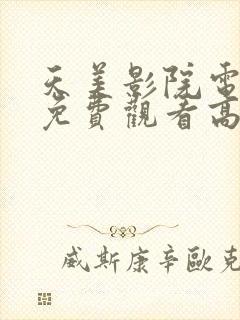 天美影院電
免費觀看高
威斯康辛歐克